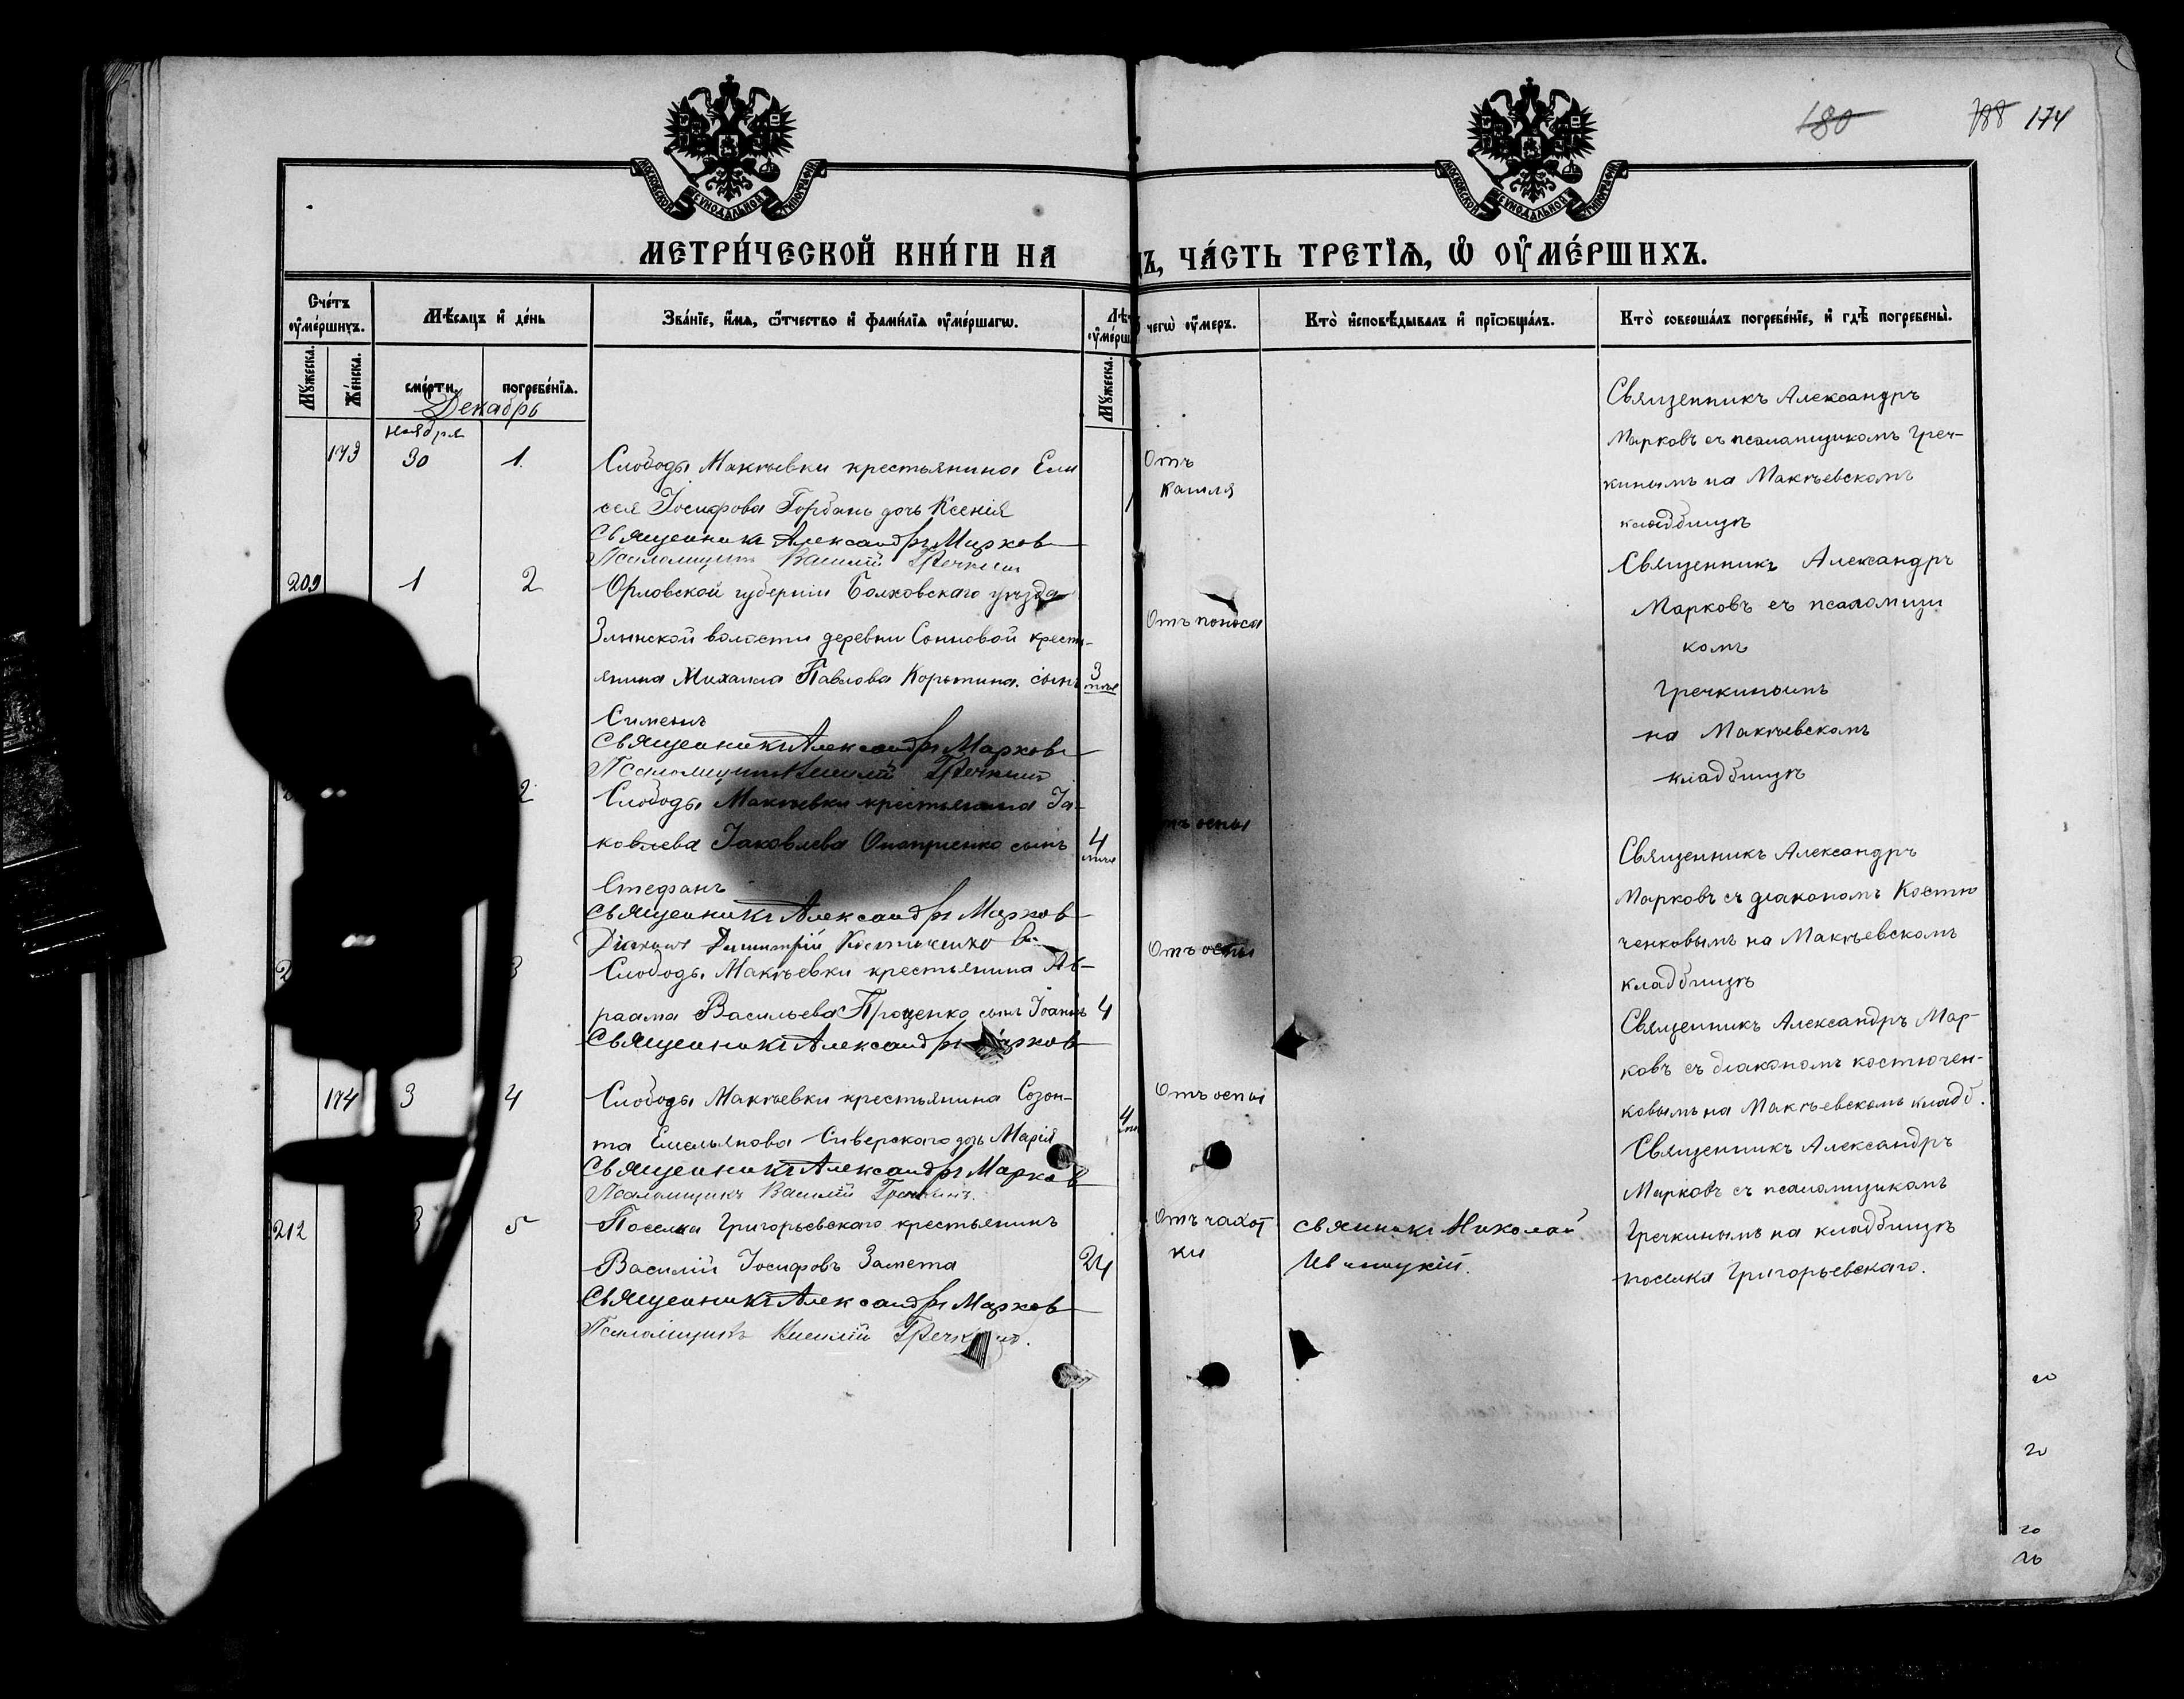 180 188 174
МОСКОВСКОЙ СѴНОДАЛЬНОЙ ТИПОГРАФІИ
МОСКОВСКОЙ СѴНОДАЛЬНОЙ ТИПОГРАФІИ
МЕТРИ́ЧЕСКОЙ КНИ́ГИ НА
Ъ, ЧА́СТЬ ТРЕТЇѦ, Ѡ҆ ОУ҆МЕ́РШИХЪ.
Сче́тъ оу҆ме́ршихъ.
Мѣ́сяцъ и҆ де́нь
Зва́нїе, и҆́мѧ, ѻ҆́тчество и҆ фами́лїѧ оу҆ме́ршагѡ.
Лѣ́т
оу҆ме́рш
чегѡ̀ оу҆́меръ.
Кто̀ и҆сповѣ́дывалъ и҆ прїѡбща́лъ.
Кто̀ соверша́лъ погребе́нїе, и҆ гдѣ̀ погребены̀.
Мꙋ́жеска.
Же́нска.
сме́рти.
погребе́нїѧ.
Мꙋ́жеска.
Декабрь
ноября
173 30 1. Слободы Макѣевки крестьянина Ели
сея Іосифова Горбань дочь Ксенія
Священникъ Александръ Марковъ
Псаломщикъ Василій Гречкинъ
1
Отъ
кашля
Священникъ Александръ
Марковъ съ псаломщикомъ Греч-
кинымъ на Макѣевскомъ
кладбищѣ
209 1 2 Орловской губерніи Болховскаго уѣзда
Злынской волости деревни Сопновой кресть-
янина Михаила Павлова Корытина. сынъ
Симеонъ
Священникъ Александръ Марковъ
Псаломщикъ Василій Гречкинъ
3
Отъ поноса
Священникъ Александръ
Марковъ съ псаломщи
комъ
Гречкинымъ
на Макѣевскомъ
кладбищѣ
2 2 Слободы Макѣевки крестьянина Іа-
ковлева Іаковлева Онопріенко сынъ
Стефанъ
Священникъ Александръ Марковъ
Діаконъ Димитрій Костюченко
4
тъ оспы
Священникъ Александръ
Марковъ съ діакономъ Костю
ченковымъ на Макѣевскомъ
кладбищѣ
2 3 Слободы Макѣевки крестьянина Ав-
раама Васильева Проценко сынъ Іоаннъ
Священникъ Александръ Марковъ
4
Отъ оспы
Священникъ Александръ Мар-
ковъ съ діакономъ Костючен-
ковымъ на Макѣевскомъ кладб.
174 3 4 Слободы Макѣевки крестьянина Созон-
та Емельянова Сиверскаго дочь Марія
Священникъ Александръ Марковъ
Псаломщикъ Василій Гречкинъ.
4
Отъ оспы
Священникъ Александръ
Марковъ съ псаломщикомъ
Гречкинымъ на кладбищѣ
поселка Григорьевскаго.
212 3 5 Поселка Григорьевскаго крестьянинъ
Василій Іосифовъ Замета
Священникъ Александръ Марковъ
Псаломщикъ Василій Гречкинъ.
24
Отъ чахот
ки
Священникъ Николай